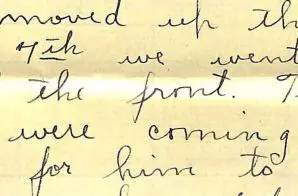 moved up th
4th we went
the front. T
were coming
for him to